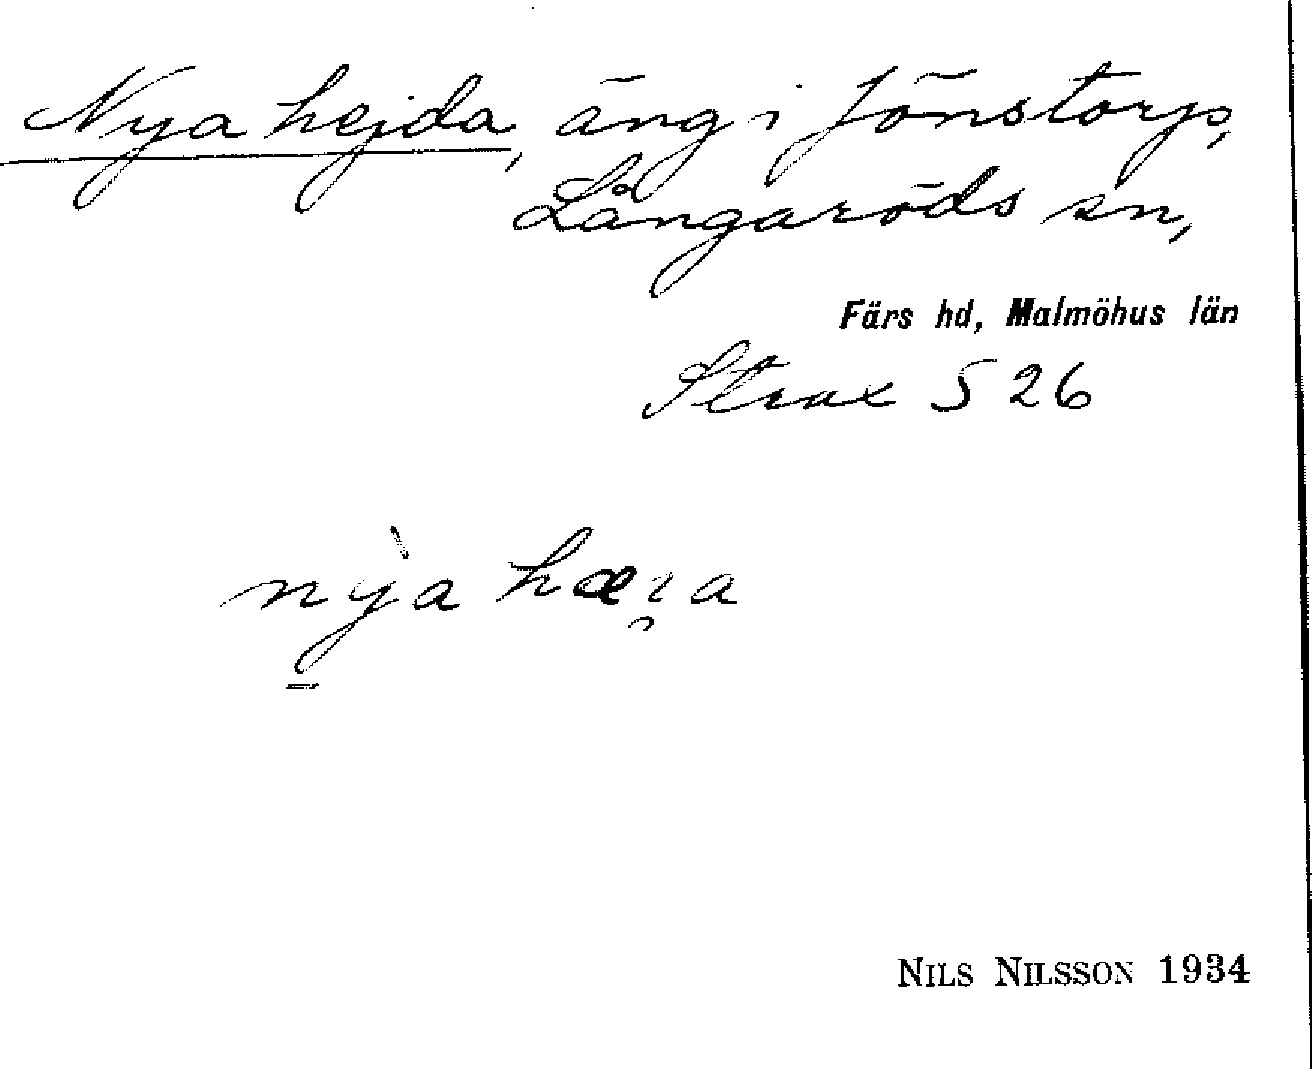 Nya hejda, äng i Jönstorp,
Långaröds sn,
Färs hd, Malmöhus län
Strax S 26
nỳa hæi̯a
NILS NILSSON 1934